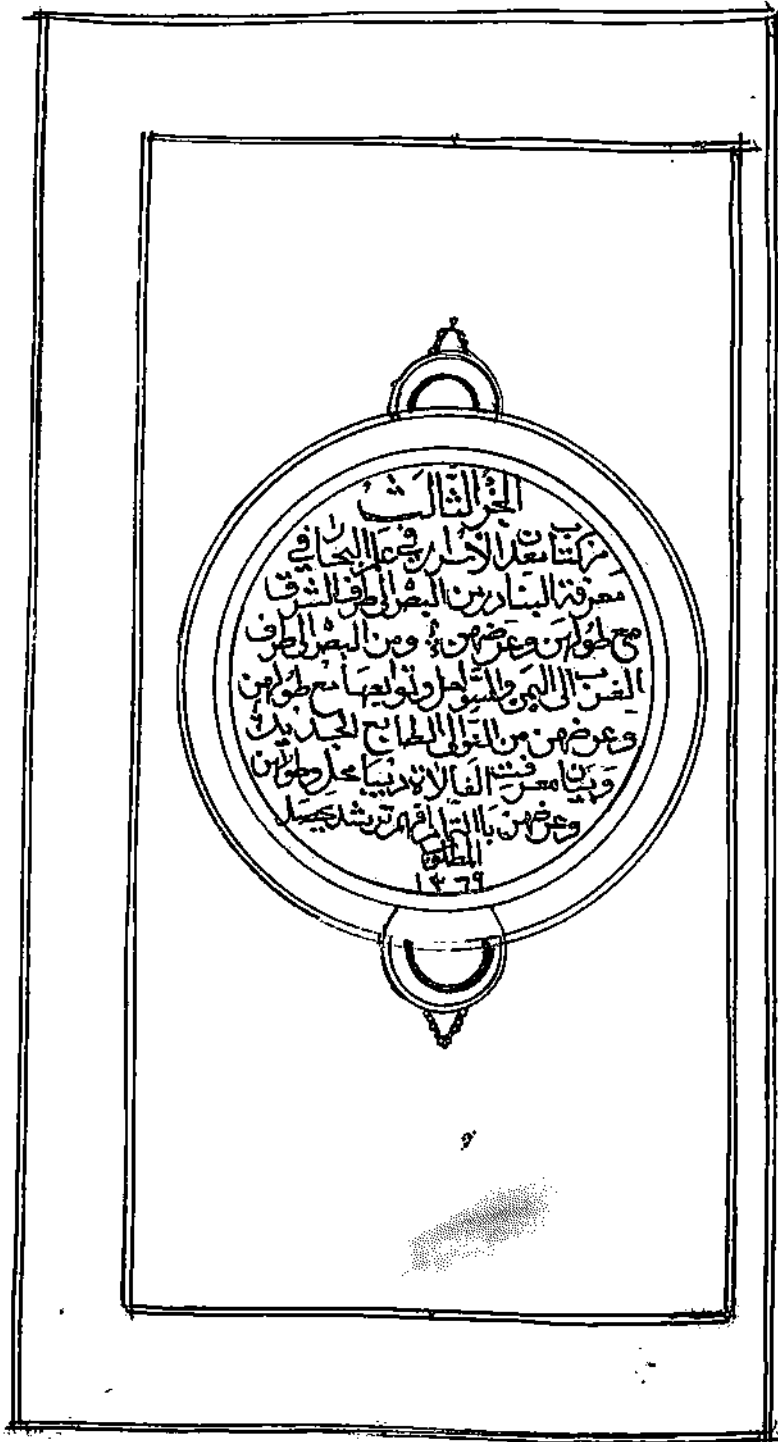 الجزء الثالث
من كتاب معدن الأسرار في علم البحار في
معرفة البنادر من البصرة الى طرف الشرق
مع طولهن وعرضهن ومن البصرة الى طرف
الغرب الى اليمن والسواحل وتوابعها مع طولهن
وعرضهن من التوالي الطابع الجديد
وبيان معرفت الفالاة دنييا محل وطولهن
وعرضهن باالتمام
المطلوب
١٣٦٩